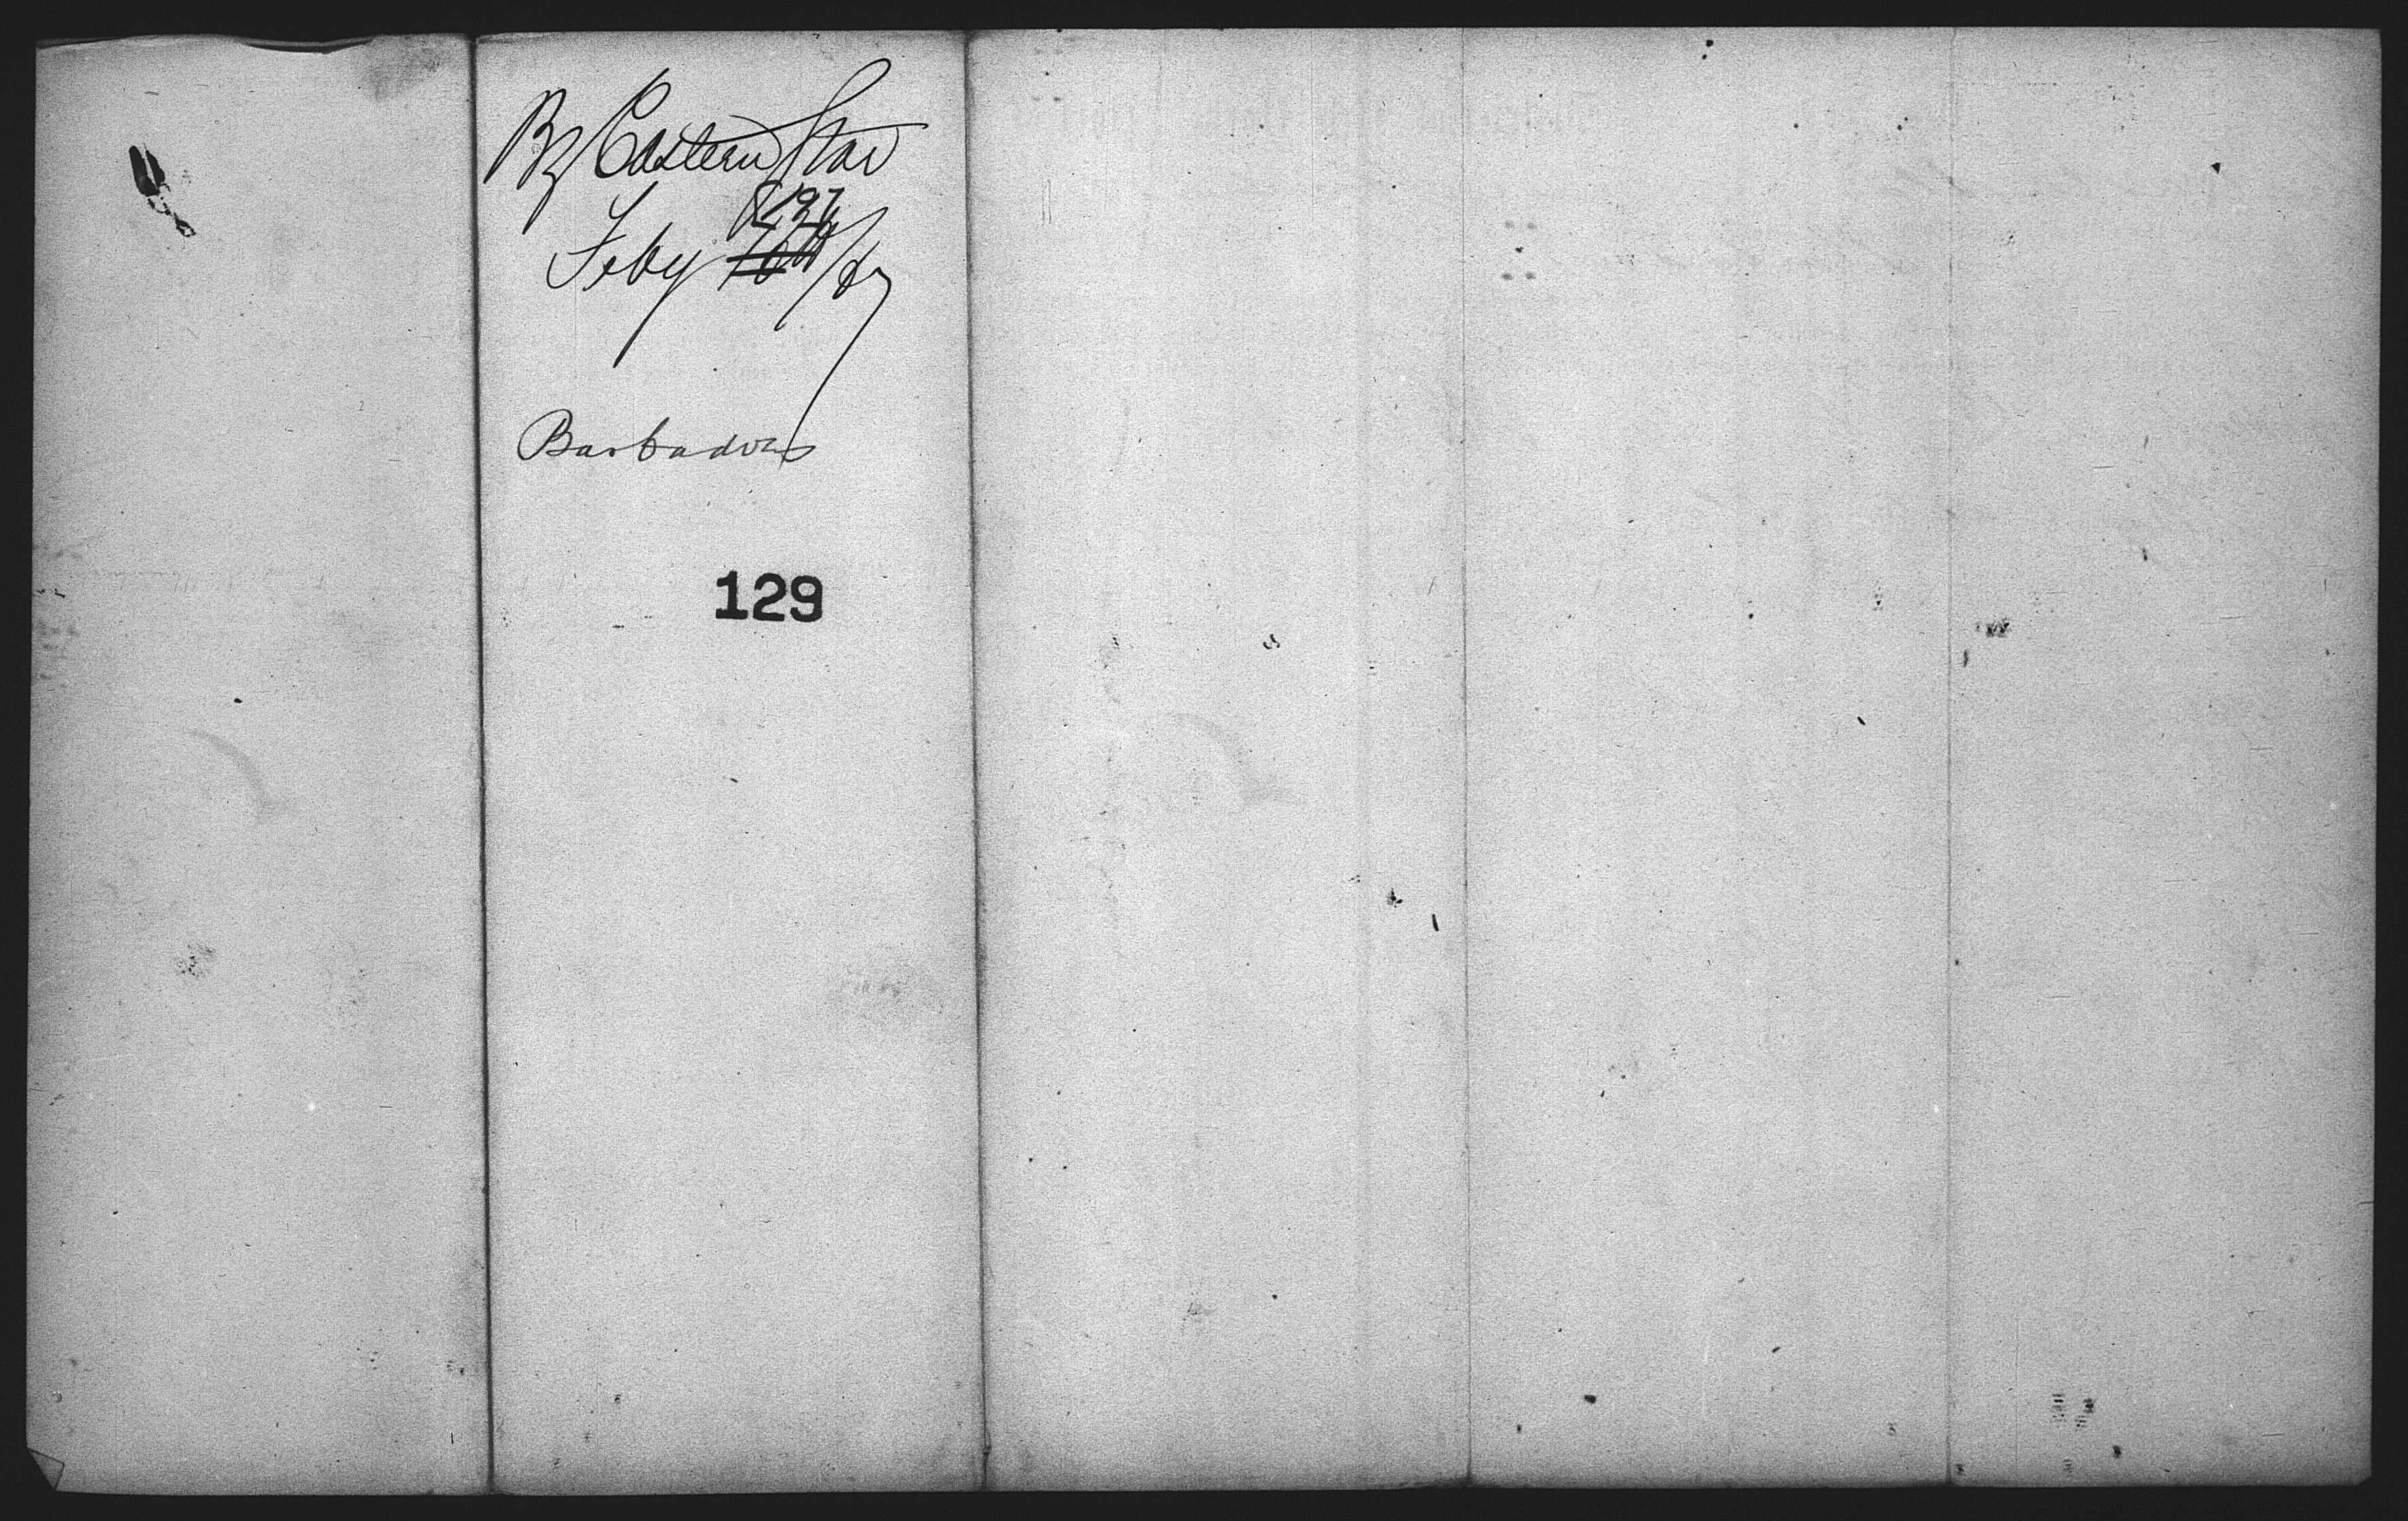 Bg Eastern Star
Feby 10th /87
Barbadoes
129